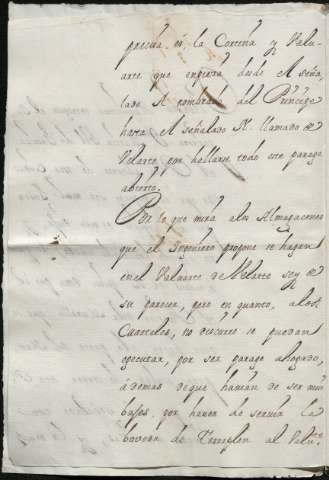 precisa en la Cortina y Valu-
arte que empieza desde el seña
lado A nombrado del Principe
hasta el señalado K. llamado de
Velasco por hallarse todo este parage
abierto.
Por lo que mira a los Almagacenes
que el Ingeniero propone se hagan
en el Valuarte de Velasco soy de
su parecer, pero en quanto, a los
Cuarteles, no descubro se puedan
egecutar, por ser parage ahogado,
ademas de que habian de ser mui
bajos, por haver de servir la
boveda de Terraplen al Valu.te